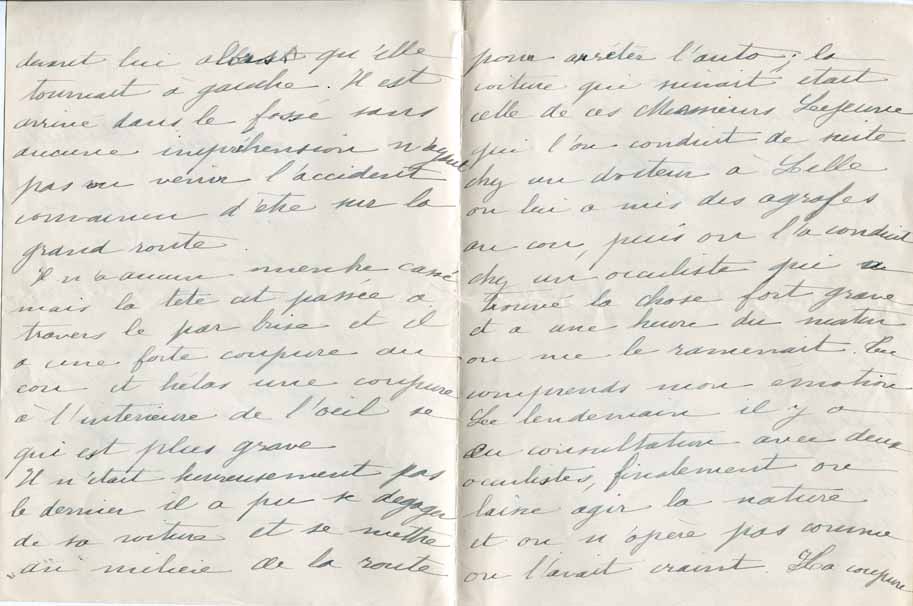 devant lui qu'elle
tournait à gauche. Il est
arrivé dans le fossé sans
aucune impréhension n'ayant
pas vu venir l'accident
convaincu d'être sur la
grand route.
Il n'a aucun membre cassé
mais la tête est passée à
travers le par brise et il
a une forte coupure au
cou et hélas une coupure
à l'intérieure de l'oeil se
qui est plus grave
Il n'était heureusement pas
le dernier il a pu se dégager
de sa voiture et se mettre
au milieu de la route
pour arrêter l'auto; la
voiture qui suivait était
celle de ces Messieurs Lejeune
qui l'on conduit de suite
chez un docteur à Lille
on lui a mis des agrafes
au cou, puis on l'a conduit
chez un occuliste qui
trouve la chose fort grave
et a une heure du matin
on me le ramenait. Tu
comprends mon emotion
Le lendemain il y a
eu consultation avec deux
occulistes, finalement on
laisse agir la nature
et on n'opère pas comme
on l'avait craint. Il a coupure